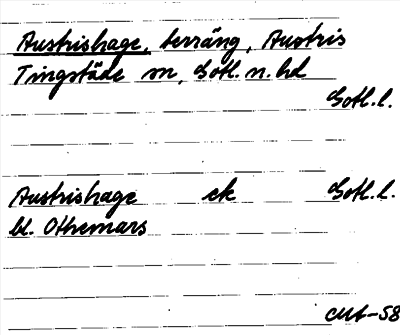 Austrishage, terräng, Austris
Tingstäde sn, Gotl. n. hd
Gotl. l.
Austrishage ek Gotl. l.
bl. Othemars
CMB-58